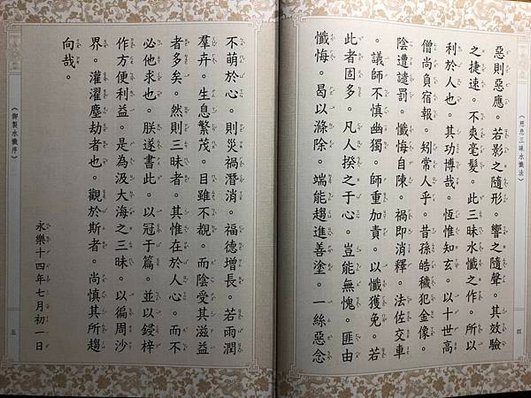 《慈悲三昧水懺法》
惡則惡應。若影之隨形。響之隨聲。其效驗
之捷速。不爽毫髮。此三昧水懺之作。所以
利於人也。其功博哉。恆惟知玄。以十世高
僧尚負宿報。矧常人乎。昔孫皓穢犯金像。
陰遭譴罰。懺悔自陳。禍即消釋。法佐交車
。議師不慎幽獨。師重加責。以懺獲免。若
此者固多。凡人揆之于心。豈能無愧。匪由
懺悔。曷以滌除。端能趨進善塗。一絲惡念
不萌於心。則災禍潛消。福德增長。若雨潤
羣卉。生息繁茂。目雖不覩。而陰受其滋益
者多矣。然則三昧者。其惟在於人心。而不
必他求也。朕遂書此。以冠于篇。並以鋟梓
作方便利益。是為汲大海之三昧。以徧周沙
界。灌濯塵劫者也。觀於斯者。尚慎其所趨
向哉。
永樂十四年七月初一日
《御製水懺序》
五